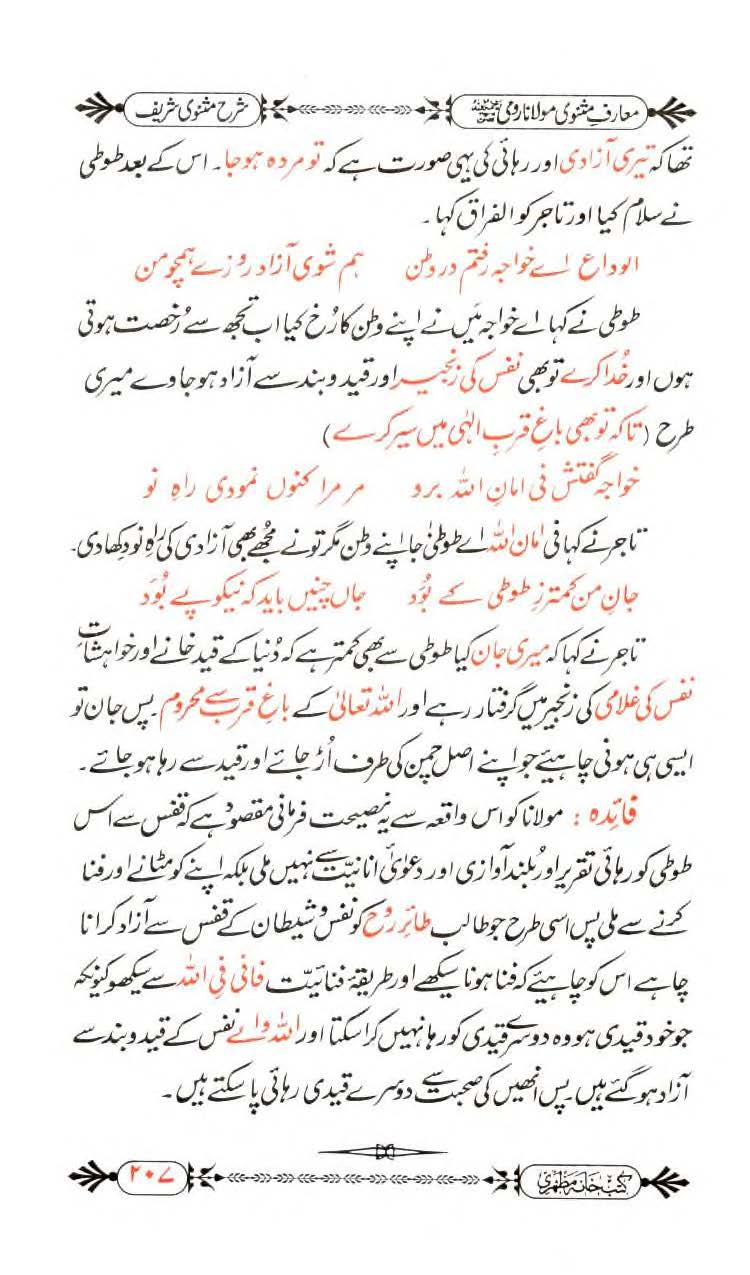 معارفِ مثنوی مولانا رومیؒ
شرح مثنوی شریف
تھا کہ تیری آزادی اور رہائی کی یہی صورت ہے کہ تو مردہ ہوجا۔ اس کے بعد طوطی
نے سلام کیا اور تاجر کو الفراق کہا۔
الوداع اے خواجہ رفتم در وطن ہم شوی آزاد روزے ہمچو من
طوطی نے کہا اے خواجہ میَں نے اپنے وطن کا رُخ کیا اب تجھ سے رُخصت ہوتی
ہوں اور خُدا کرے تو بھی نفس کی زنجیر اور قید و بند سے آزاد ہو جاوے میری
طرح (تاکہ تو بھی باغِ قربِ الٰہی میں سیر کرے)
خواجہ گفتش فی امانِ اللہ برو مر مرا کنوں نمودی راہِ نو
تاجر نے کہا فی اَمان اللہ اے طوطیٰ جا اپنے وطن مگر تو نے مُجھے بھی آزادی کی راہِ نو دکھا دی۔
جانِ من کمتر ز طوطی کے بُوَد جاں چنیں باید کہ نیکو پے بُوَد
تاجر نے کہا کہ میری جان کیا طوطی سے بھی کمتر ہے کہ دُنیا کے قید خانے اور خواہشاتِ
نفس کی غلامی کی زنجیر میں گرفتار رہے اور اللہ تعالیٰ کے باغِ قرب سے محروم۔ پس جان تو
ایسی ہی ہونی چاہیئے جو اپنے اصل چمن کی طرف اُڑ جائے اور قید سے رہا ہو جائے۔
فائدہ : مولانا کو اس واقعہ سے یہ نصیحت فرمانی مقصود ہے کہ قفس سے اس
طوطی کو رہائی تقریر اور بُلند آوازی اور دعوائ انانیّت سے نہیں ملی بلکہ اپنے کو مٹانے اور فنا
کرنے سے ملی پس اسی طرح جو طالب طائرِ روح کو نفس و شیطان کے قفس سے آزاد کرانا
چاہے اس کو چاہیئے کہ فنا ہونا سیکھے اور طریقۂ فنائیّت فانی فی اللہ سے سیکھو کیونکہ
جو خود قیدی ہو وہ دوسرے قیدی کو رہا نہیں کرا سکتا اور اللہ والے نفس کے قید و بند سے
آزاد ہو گئے ہیں۔ پس انھیں کی صحبت سے دوسرے قیدی رہائی پا سکتے ہیں۔
کتب خانہ مظہری
۲۰۷